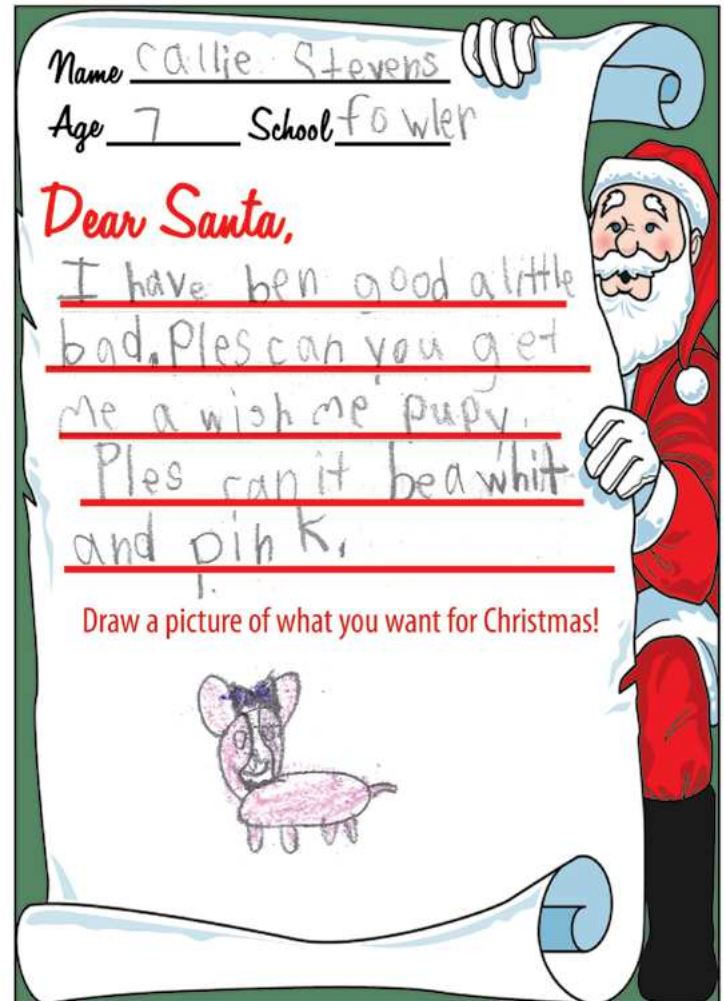 Name Callie Stevens
Age 7 School fowler
Dear Santa,
I have ben good a little
bad. Ples can you get
me a wish me pupy.
Ples can it be a whit
and pink.
Draw a picture of what you want for Christmas!